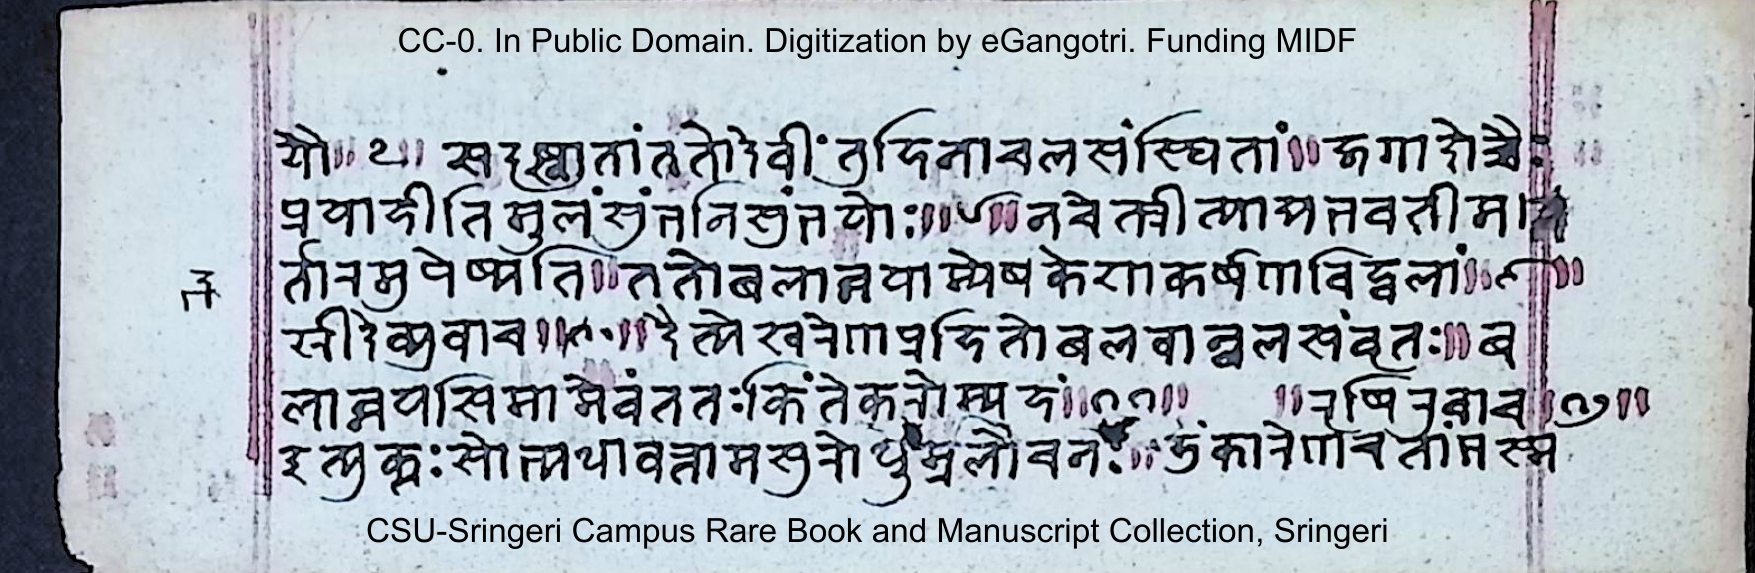 CC-0. In Public Domain. Digitization by eGangotri. Funding MIDF
यौ॥ ४॥ सदृष्ट्वातांततोदेवींतुहिनाचलसंस्थितां॥ जगादोच्चैः
प्रयाहीतिमुलंशुंभनिशुंभयोः॥ ५॥ नचेत्प्रीत्याद्यभवतीम
र्तारमुपैष्यति॥ ततोबलान्नयाम्येषकेशाकर्षणविह्वलां॥ ६॥
श्रीदेव्युवाच॥ ७॥ दैत्येश्वरेणप्रहितोबलवान्बलसंवृतः॥ ब
लान्नयसिमामेवंततःकिंतेकरोम्यहं॥ ८॥ ॥ऋषिरुवाच॥ ९॥
इत्युक्तःसोभ्यधावत्तामसुरोधूम्रलोचनः॥ हुंकारेणैवतांभस्म
CSU-Sringeri Campus Rare Book and Manuscript Collection, Sringeri